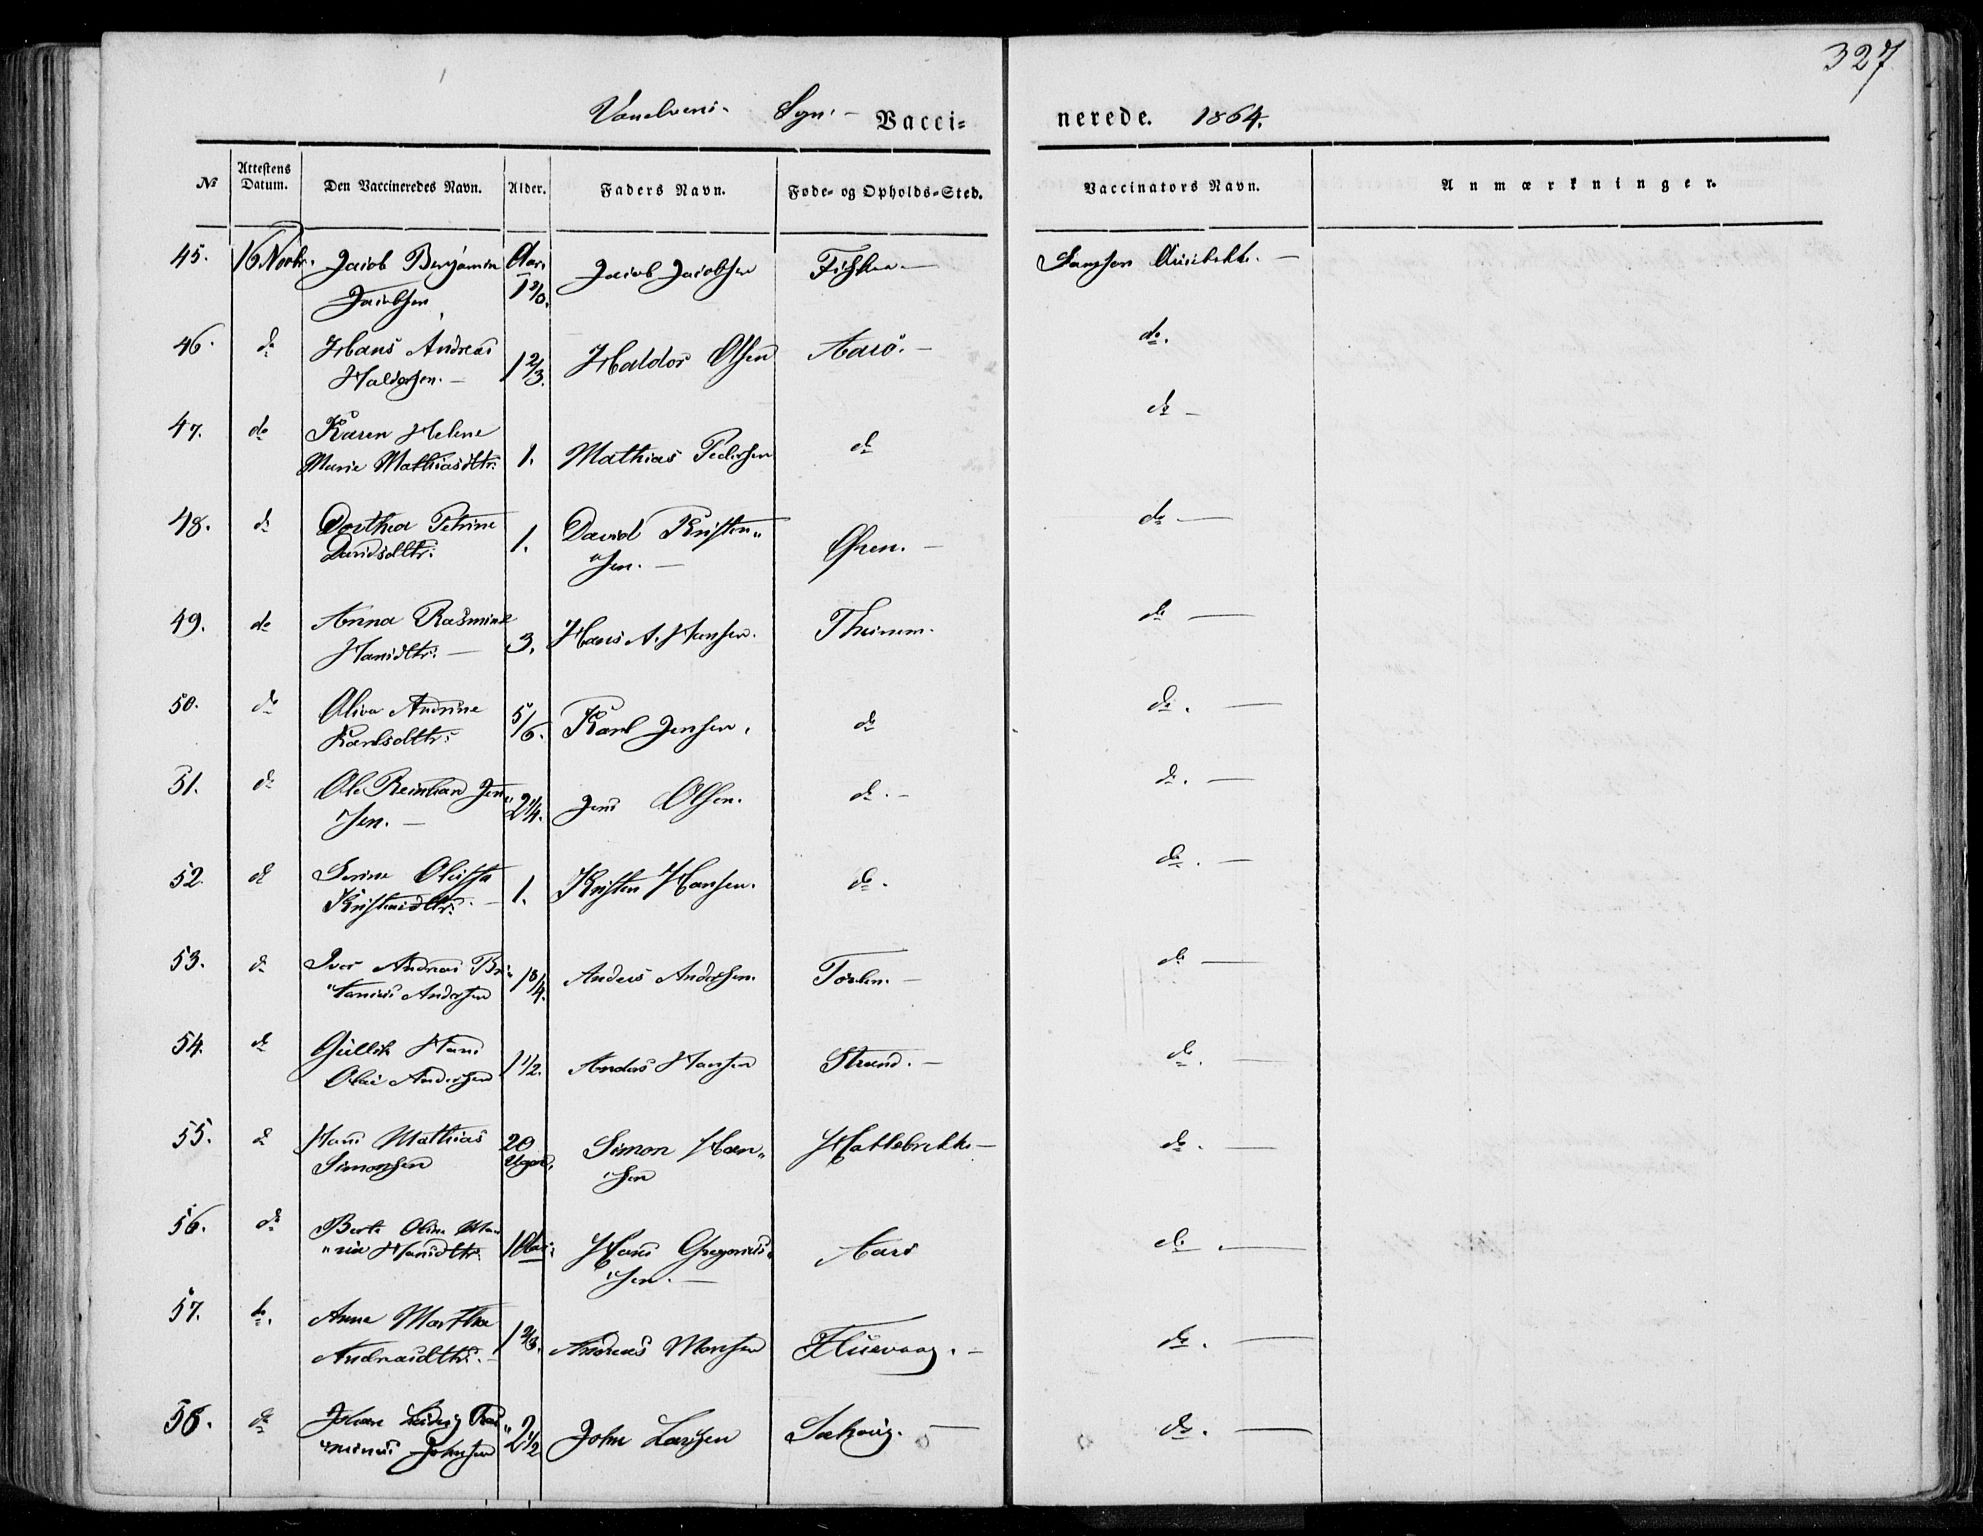 327
Vanelvens Sgn. Vacci= nerede. 1864.
№ Attestens Datum. Den Vaccineredes Navn. Alder. Faders Navn. Føde- og Opholds-Sted. Vaccinators Navn. Anmærkninger.
45. 16 Novbr. Jacob Benjamin Aar. Jacob Jacobsen
Jacobsen
46. do Hans Andreas 1 2/3. Haldor Olsen Aarö. do.
Haldorsen.
47. do Karen Helene do
Marie Mathiasdtr. 1. Mathias Pedersen do
48. do Dorthea Petrine 1. David Kristen„ do
Davidsdtr. „sen. Øren.
49. do Anna Rasmine 3. Hans A. Hansen. do
Hansdtr.
50. do Oliva Andrine 5/6. Karl Jensen. do do.
Karlsdtr.
51. do Ole Reinhard Jen„ 2 1/4. Jens Olsen. do. do.
„sen.
52. do 1. Kristen Hansen. do. do.
Kristensdtr.
53. do Iver Andreas Anders Andersen. do
Andersen
54. do Gullik Hans 1 1/2. Anders Hansen Strand. do.
Olai Andersen
55. do Hans Mathias 20 Simon Han„ Hatlebrekke do.
Simonsen Uger. „sen
56. do Berte Oline Ma„ 1 Aar. Hans Gregorius„ Aarö do.
„rie Hansdtr. „sen.
57. do. Anne Marthe 1 2/3. Andreas Monsen do.
Andreasdtr.
58. do Johan Ludvig Ras„ 2 1/2 John Larsen do.
„minus Johnsen